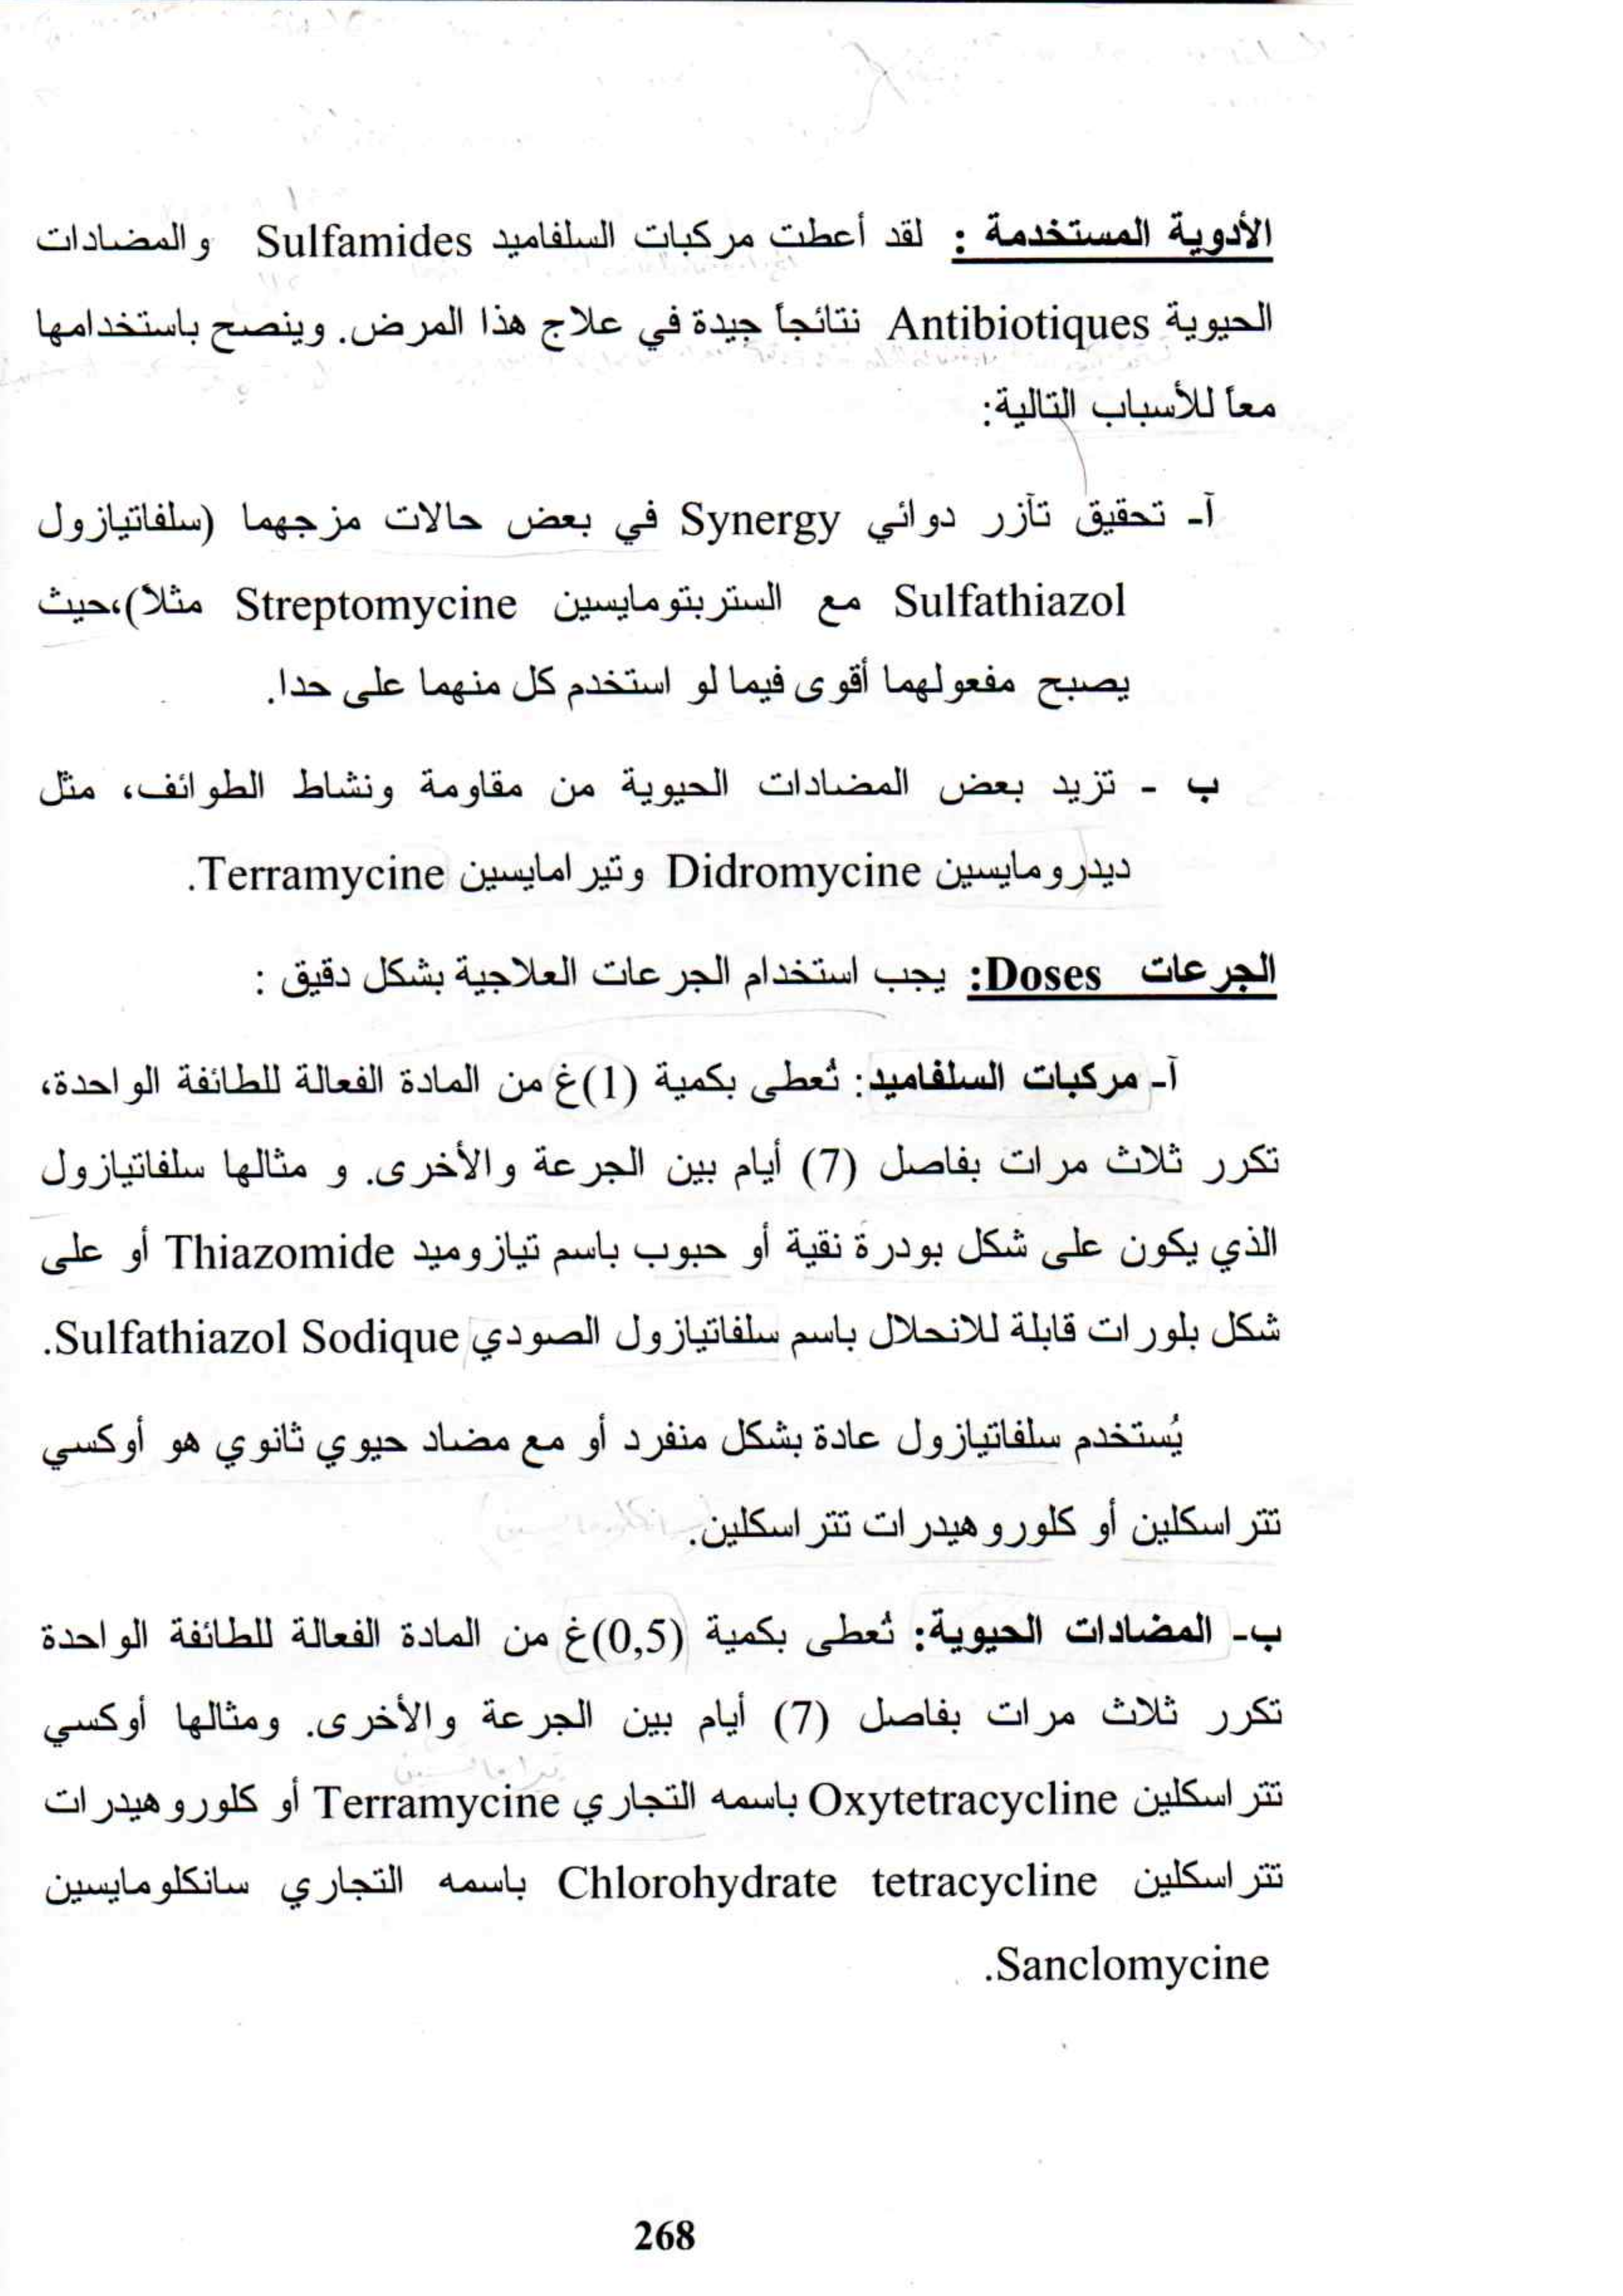 الأدوية المستخدمة : لقد أعطت مركبات السلفاميد Sulfamides والمضادات
الحيوية Antibiotiques نتائجاً جيدة في علاج هذا المرض. وينصح باستخدامها
معاً للأسباب التالية:
آ- تحقيق تآزر دوائي Synergy في بعض حالات مزجهما (سلفاتيازول
Sulfathiazol مع الستربتومايسين Streptomycine مثلاً)،حيث
يصبح مفعولهما أقوى فيما لو استخدم كل منهما على حدا.
ب - تزيد بعض المضادات الحيوية من مقاومة ونشاط الطوائف، مثل
ديدرومايسين Didromycine وتيرامايسين Terramycine.
الجرعات Doses: يجب استخدام الجرعات العلاجية بشكل دقيق :
آ- مركبات السلفاميد: تُعطى بكمية (1)غ من المادة الفعالة للطائفة الواحدة،
تكرر ثلاث مرات بفاصل (7) أيام بين الجرعة والأخرى. و مثالها سلفاتيازول
الذي يكون على شكل بودرة نقية أو حبوب باسم تيازوميد Thiazomide أو على
شكل بلورات قابلة للانحلال باسم سلفاتيازول الصودي Sulfathiazol Sodique.
يُستخدم سلفاتيازول عادة بشكل منفرد أو مع مضاد حيوي ثانوي هو أوكسي
تتراسكلين أو كلوروهيدرات تتراسكلين.
ب- المضادات الحيوية: تُعطى بكمية (0,5)غ من المادة الفعالة للطائفة الواحدة
تكرر ثلاث مرات بفاصل (7) أيام بين الجرعة والأخرى. ومثالها أوكسي
تتراسكلين Oxytetracycline باسمه التجاري Terramycine أو كلوروهيدرات
تتراسكلين Chlorohydrate tetracycline باسمه التجاري سانكلومايسين
Sanclomycine.
268